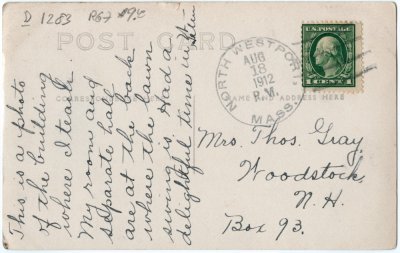 D 1283 P67 $9.00
POST CARD
CORRES
NAME AND ADDRESS HERE
NORTH WESTPORT
AUG
18
1912
P.M.
MASS.
1 CENT 1
This is a photo
of the building
where I teach.
My room and
separate hall
are at the back
where the lawn
swing is. Had a
delightful time in
Mrs. Thos. Gray,
Woodstock,
N. H.
Box 93.